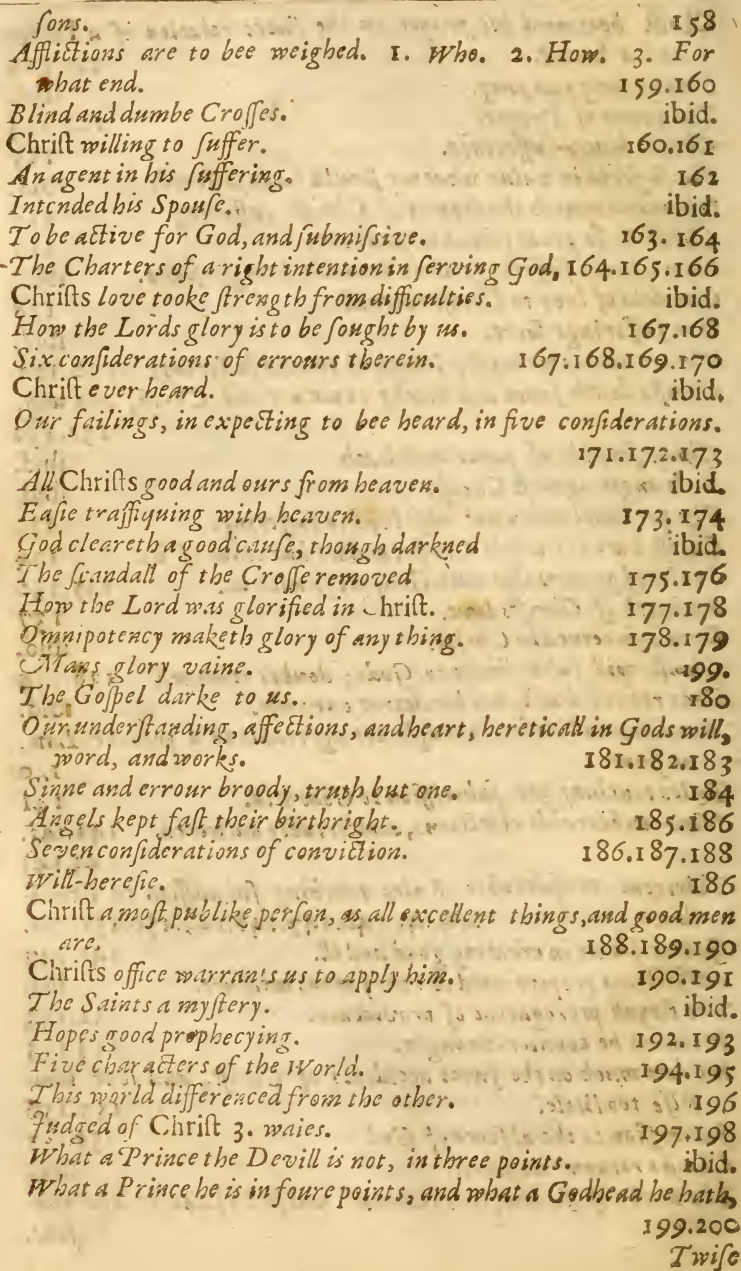 ſons. 158
Afflictions are to bee weighed. 1. Who. 2. How. 3. For
what end. 159.160
Blind and dumbe Croſſes. ibid.
Chriſt willing to ſuffer. 160.161
An agent in his ſuffering. 162
Intended his Spouſe. ibid.
To be active for God, and ſubmiſsive. 163. 164
The Charters of a right intention in ſerving God, 164.165.166
Chriſts love tooke ſtrength from difficulties. ibid.
How the Lords glory is to be ſought by us. 167.168
Six conſiderations of errours therein. 167.168.169.170
Chriſt ever heard. ibid.
Our failings, in expecting to bee heard, in five conſiderations.
171.172.173
All Chriſts good and ours from heaven. ibid.
Eaſie traffiquing with heaven. 173.174
God cleareth a good cauſe, though darkned ibid.
The ſcandall of the Croſſe removed 175.176
How the Lord was glorified in Chriſt. 177.178
Omnipotency maketh glory of any thing. 178.179
Mans glory vaine. 199.
The Goſpel darke to us. 180
Our underſtanding, affections, and heart, hereticall in Gods will,
word, and works. 181.182.183
Sinne and errour broody, truth but one. 184
Angels kept faſt their birthright. 185.186
Seven conſiderations of conviction. 186.187.188
Will-hereſie. 186
Chriſt a moſt publike perſon, as all excellent things, and good men
are. 188.189.190
Chriſts office warrants us to apply him. 190.191
The Saints a myſtery. ibid.
Hopes good prophecying. 192.193
Five characters of the World. 194.195
This world differenced from the other. 196
Judged of Chriſt 3. waies. 197.198
What a Prince the Devill is not, in three points. ibid.
What a Prince he is in foure points, and what a Godhead he hath,
199.200
Twiſe